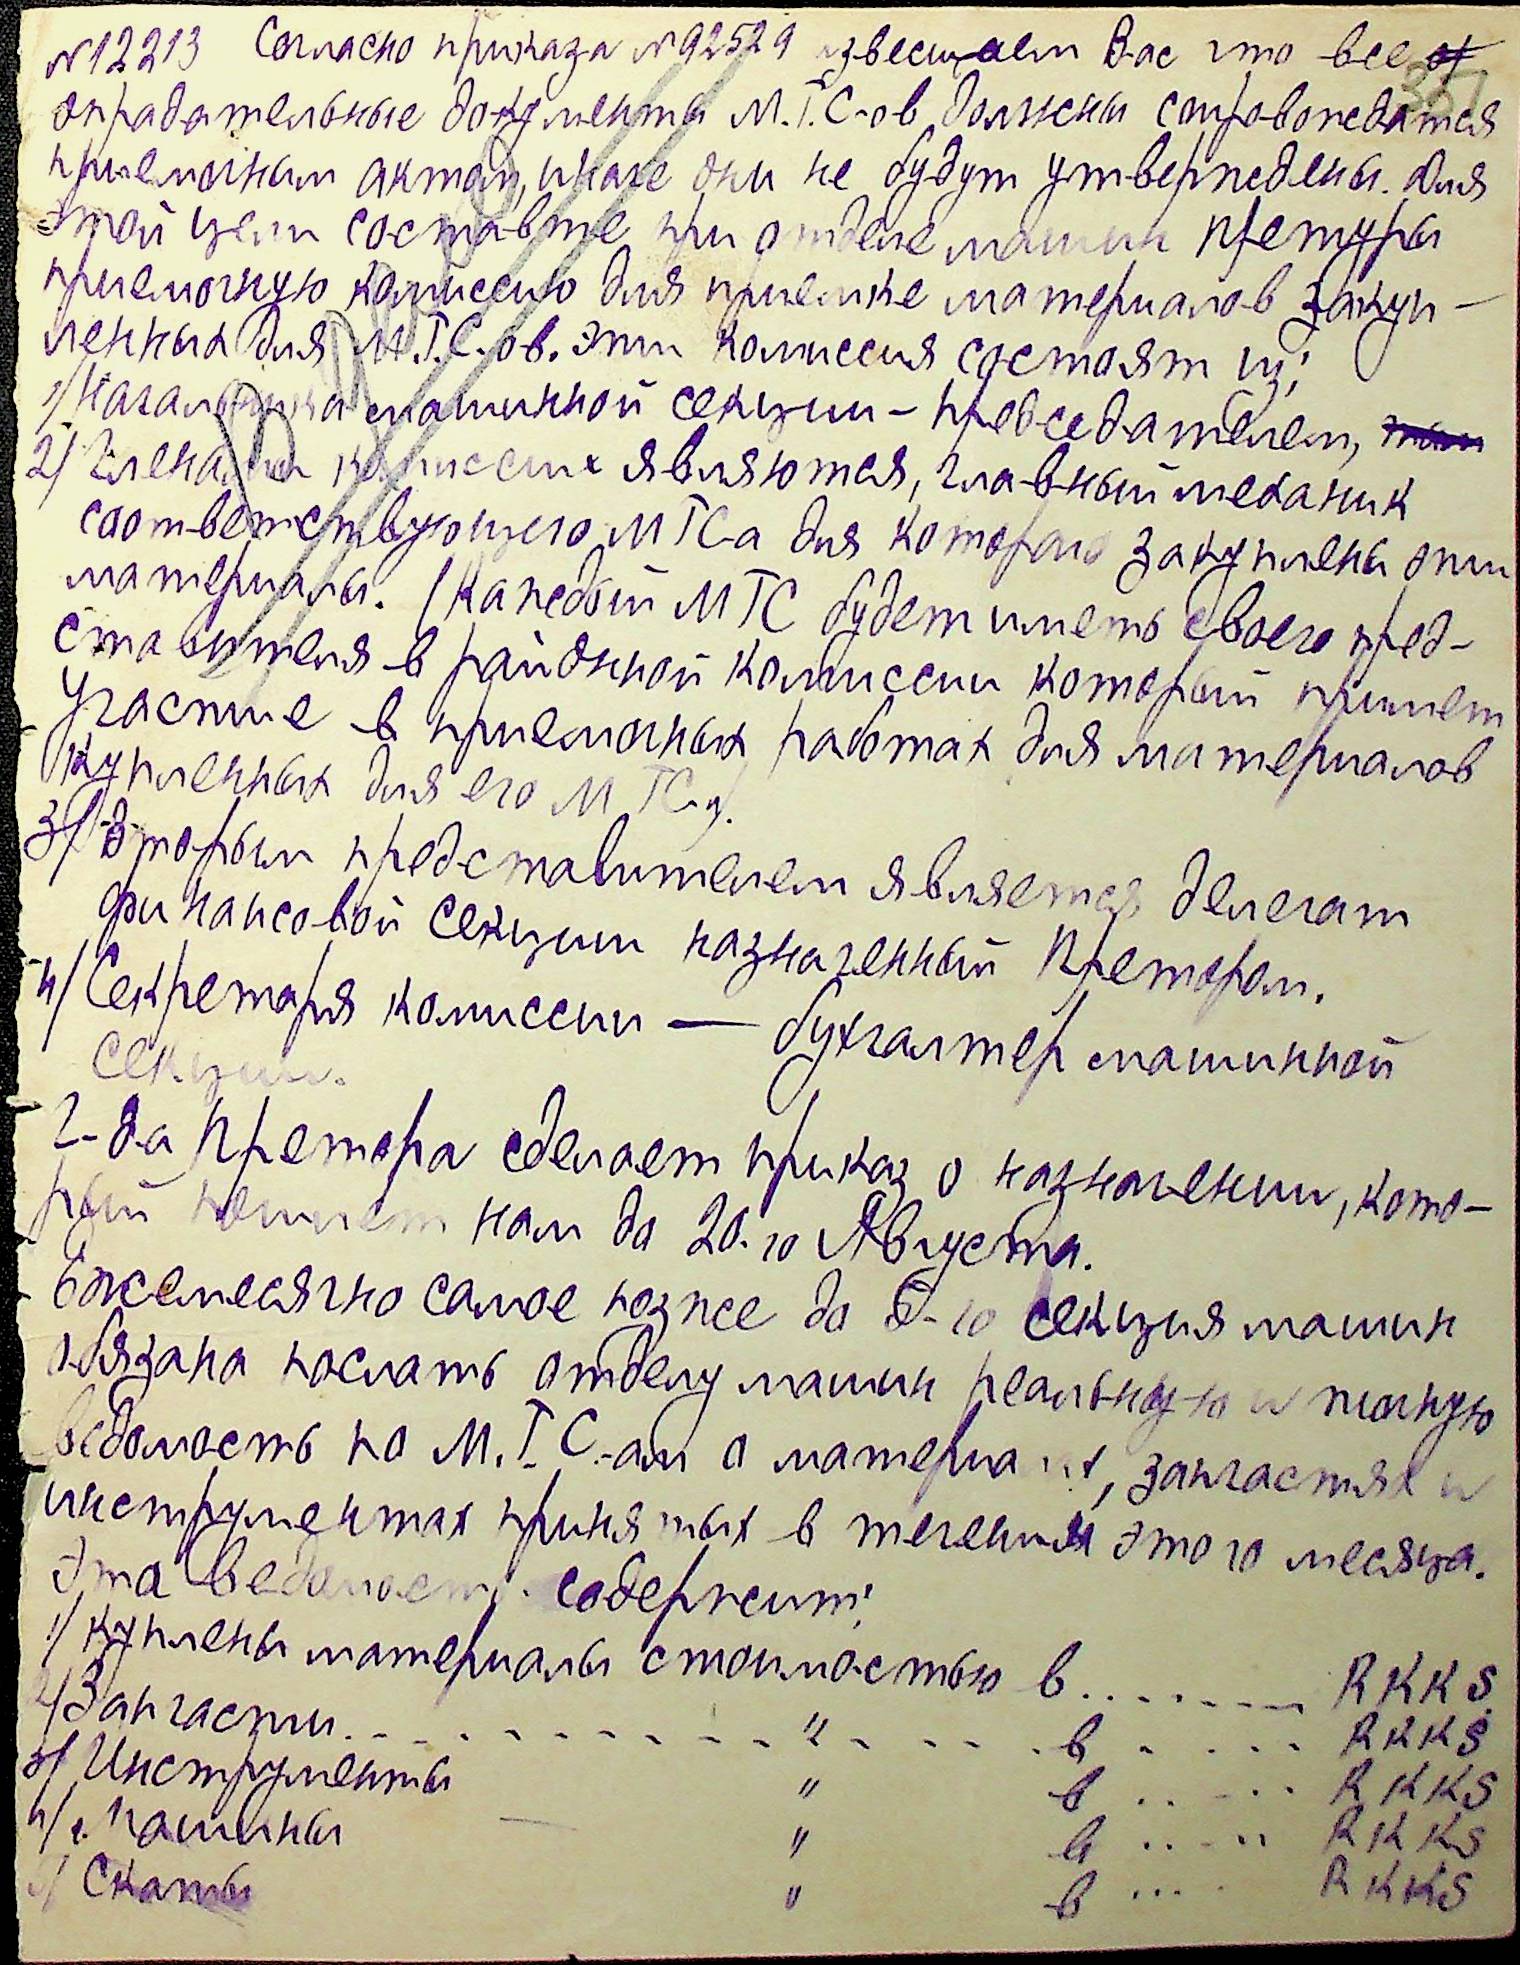 №12213 Согласно приказа №92529 извещаем Вас что все
оправдательные документы М.Т.С-ов должны сопровождатся
приемочным актом, иначе они не будут утверждены. Для
этой цели составте при отделе машин претуры
приемочную комиссию для приемке материалов закуп-
ленных для М.Т.С-ов. Эти комиссия состоят из:
1) Начальника машинной секции - председателем,
2) Членами комиссиих являются, главный механик
соответствующего МТС-а для которого закуплены эти
материалы. (Каждый МТС будет иметь своего пред-
ставителя в районной комиссии который примет
участие в приемочных работах для материалов
купленных для его МТС-а).
3) Вторым представителем является делегат
финансовой секции назначенный Претором.
4) Секретаря комиссии — бухгалтер машинной
секции.
Г-да Претора сделает приказ о назначении, кото-
рый пошлет нам до 20-го Августа.
Ежемесячно самое позже до 5-го секция машин
обязана послать отделу машин реальную и точную
ведомость по М.Т.С.-ам о материалах, запчастях и
инструментах принятых в течении этого месяца.
Эта ведомость содержит:
1) Куплены материалы стоимостью в........ RKKS
2) Запчасти............ " .... в ..... RKKS
3) Инструменты " в ..... RKKS
4) Машины " в ..... RKKS
5) Скаты " в .... RKKS